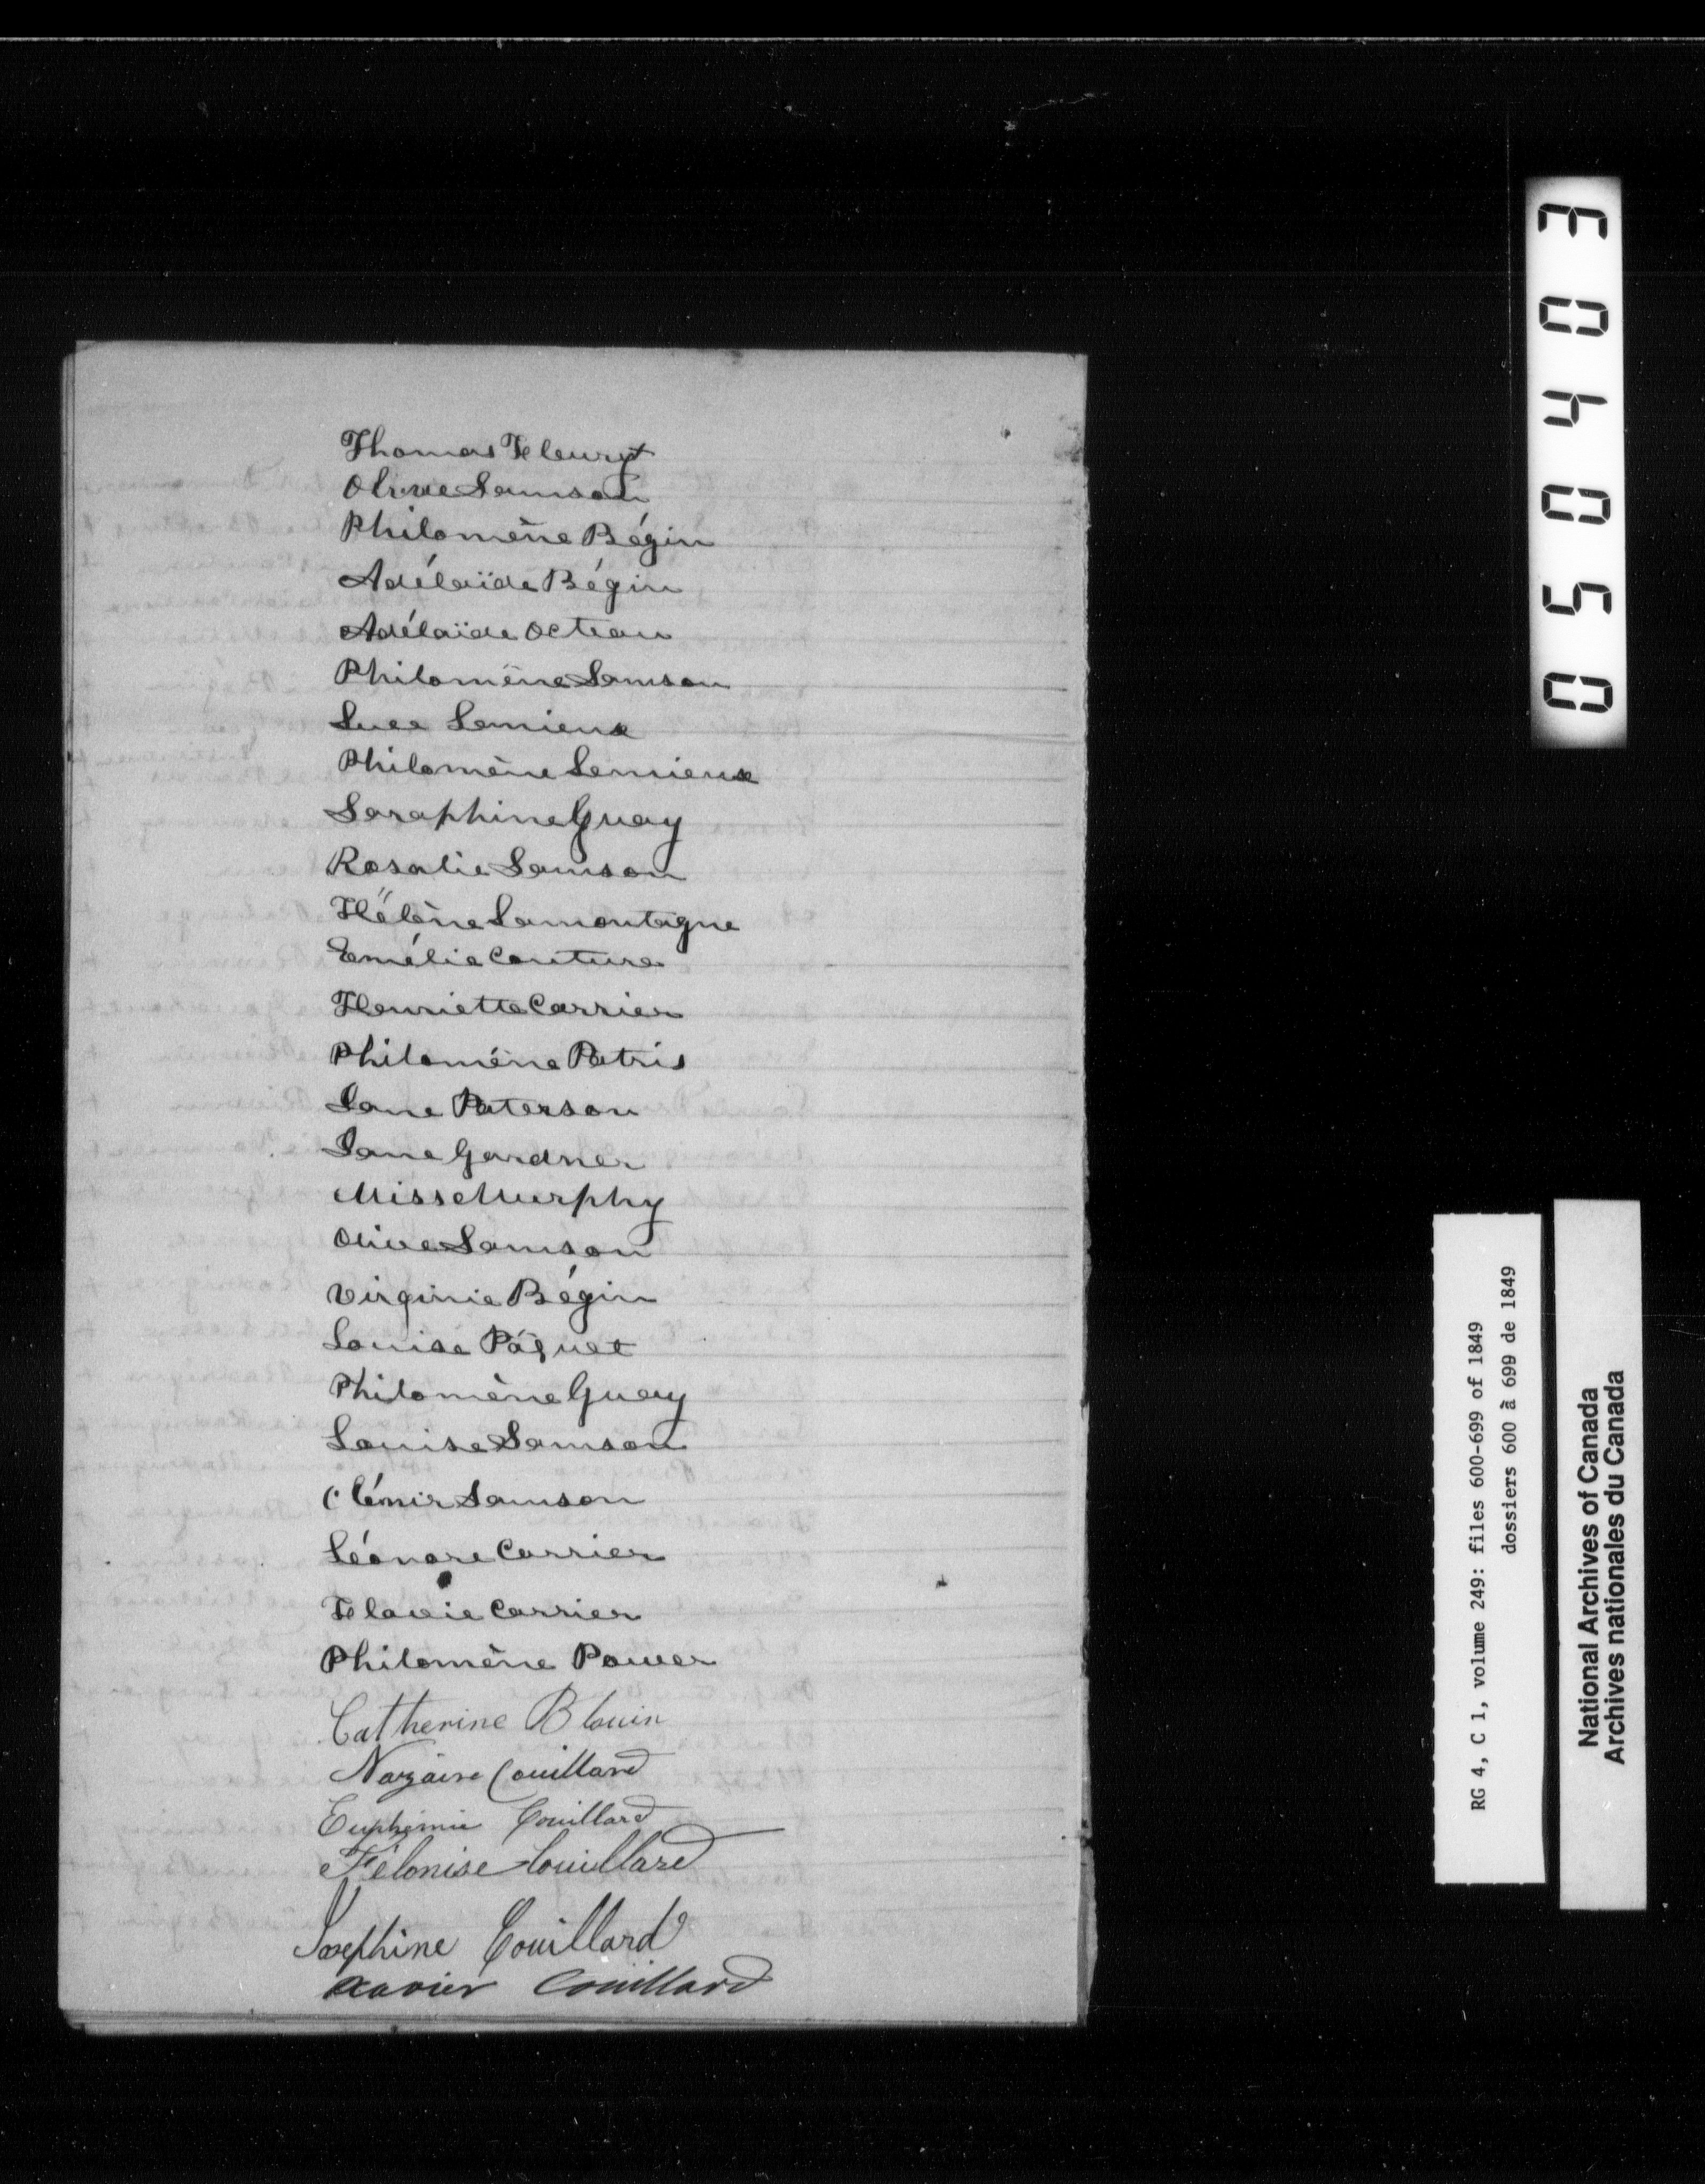 Thomas Fleury
Olive Samson
Philomène Bégin
Adélaïde Bégin
Adélaïde Octeau
Philomène Samson
Luce Lemieux
Philomène Lemieux
Seraphine Guay
Rosalie Samson
Hélène Lamontagne
Emélie Couture
Henriette Carrier
Philomène Patris
Jane Paterson
Jane Gardner
Miss Murphy
Olive Samson
Virginie Bégin
Louise Páquet
Philomène Guay
Louise Samson
Clémir Samson
Léonore Carrier
Flavie Carrier
Philomène Power
Catherine Blouin
Nazaire Couillard
Euphémie Couillard
Félonise Couillard
Josephine Couillard
Xavier Couillard
E04050
RG 4, C 1, volume 249: files 600-699 of 1849
dossiers 600 à 699 de 1849
National Archives of Canada
Archives nationales du Canada